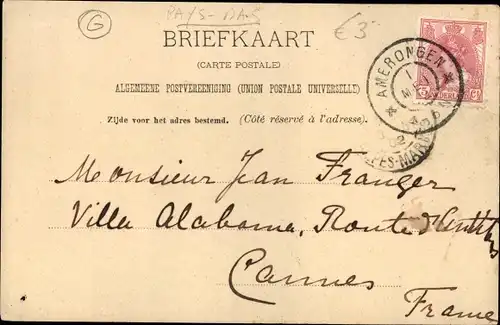 G
PAYS-BAS
€3
BRIEFKAART
(CARTE POSTALE)
ALGEMEENE POSTVEREENIGING (UNION POSTALE UNIVERSELLE)
Zijde voor het adres bestemd. (Côté réservé à l'adresse).
AMERONGEN
1
MEI
NEDERLAND
Monsieur Jan Franger
Villa Alabama, Route d'
Cannes
France